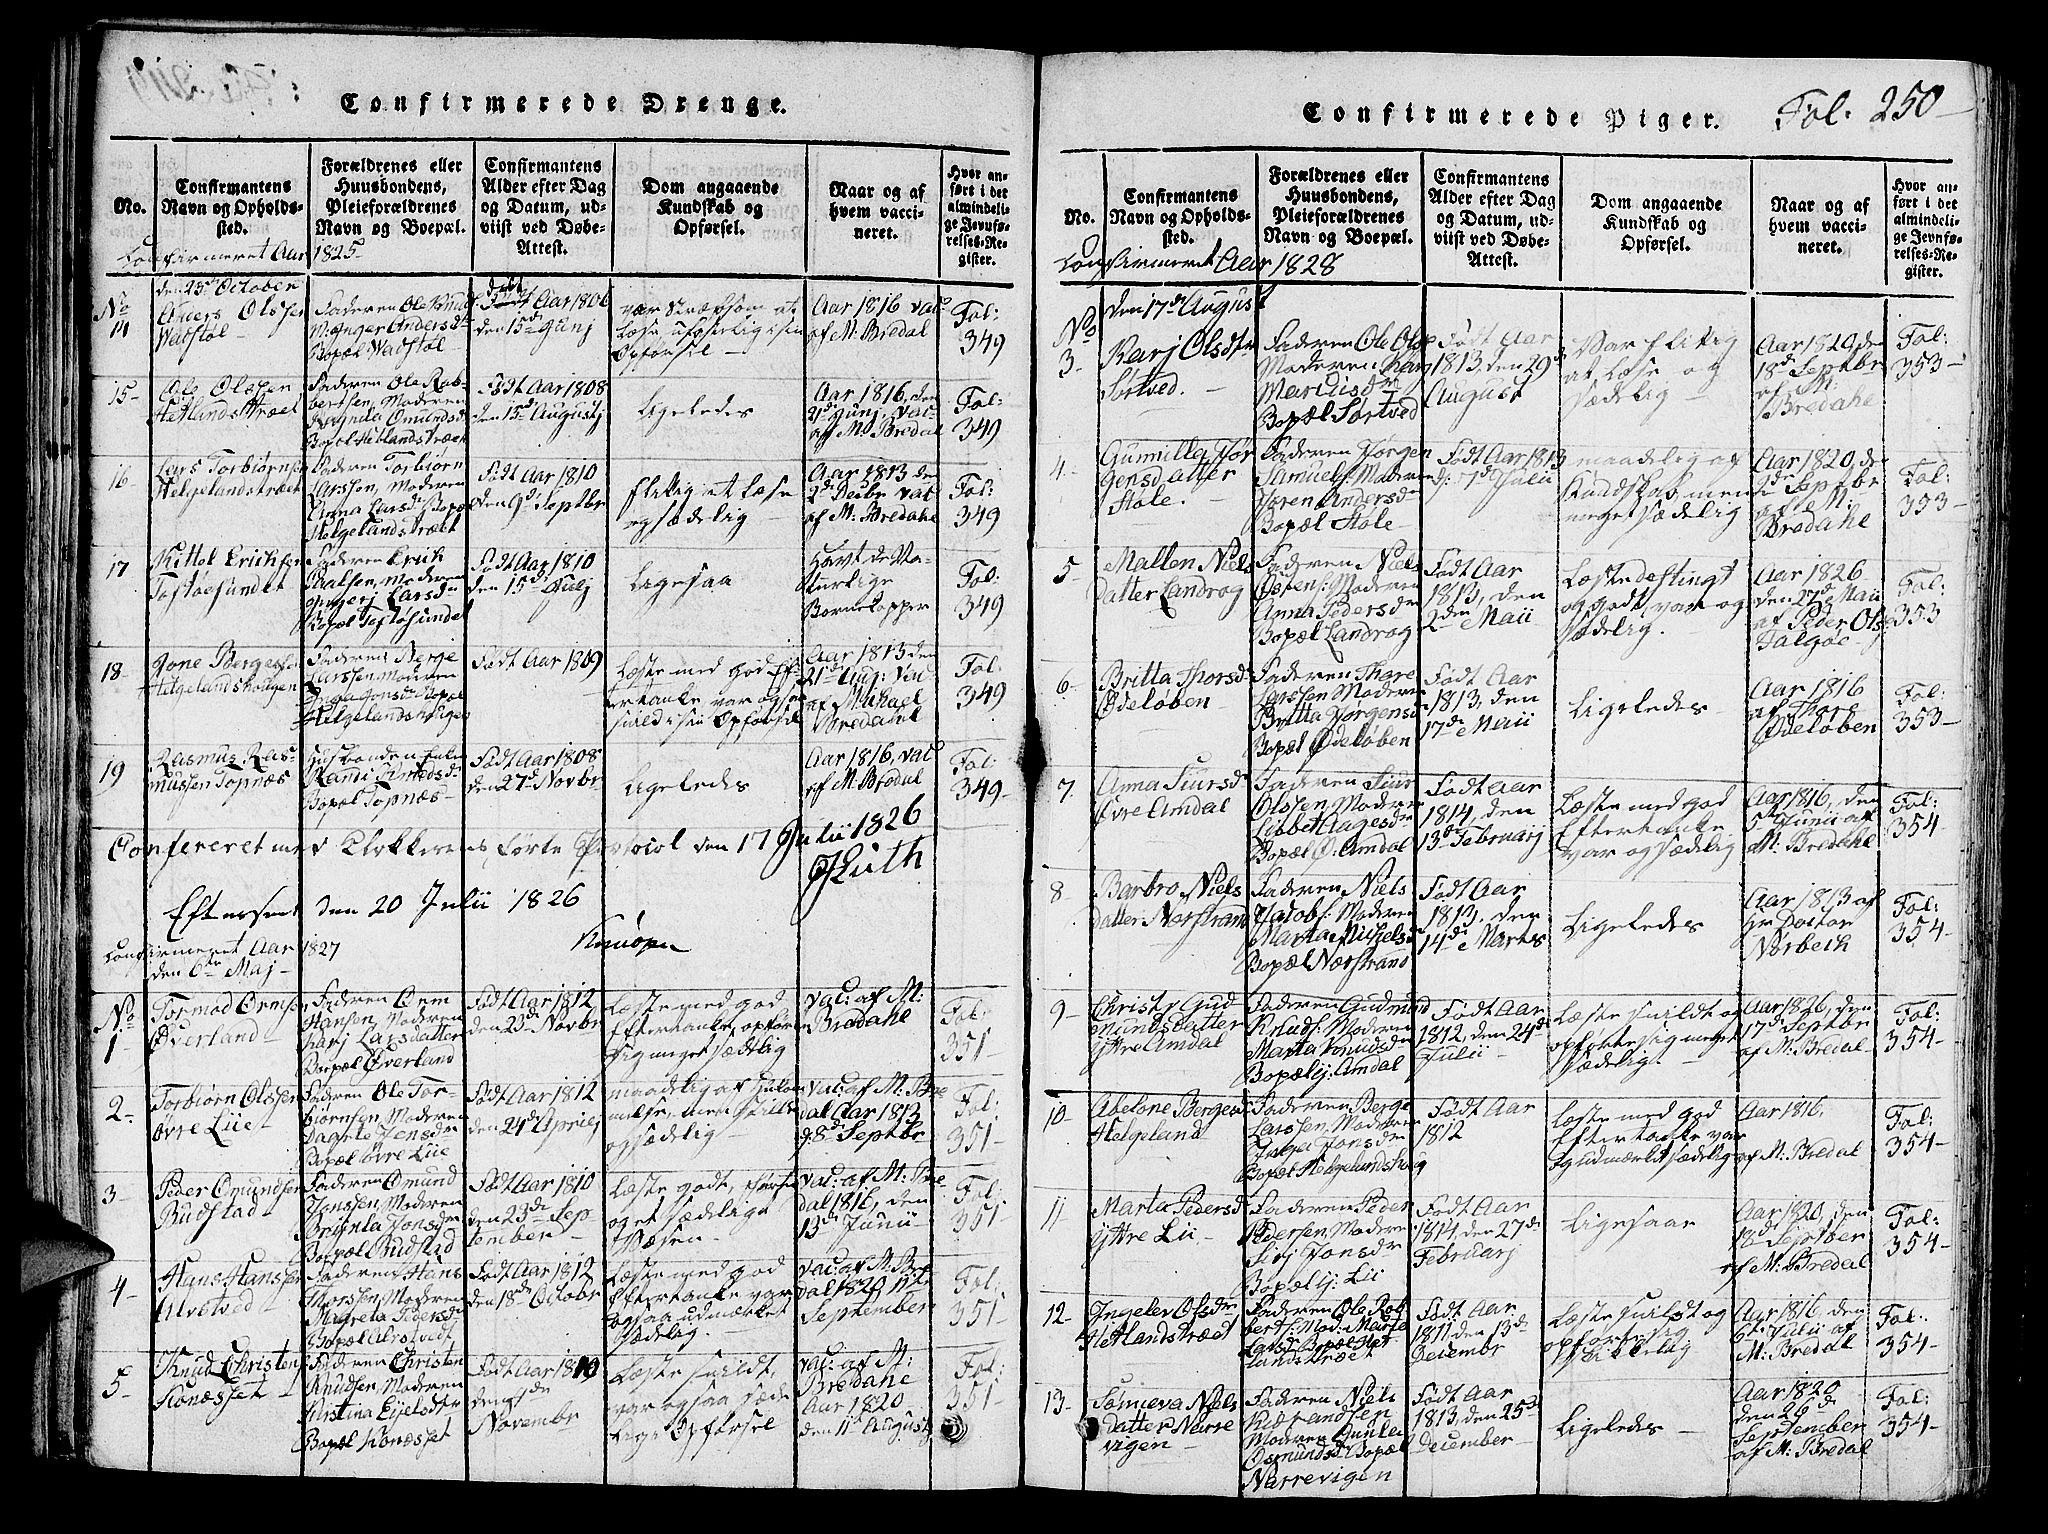 Confirmerede Drenge.
No.
Confirmantens
Navn og Opholds-
sted.
Forældrenes eller
Huusbondens,
Pleieforældrenes
Navn og Boepæl.
Confirmantens
Alder efter Dag
og Datum, ud-
viist ved Døbe-
Attest.
Dom angaaende
Kundskab og
Opførsel.
Naar og af
hvem vacci-
neret.
Hvor an-
ført i det
almindeli-
ge Jevnfø-
relses-Re-
gister.
Confirmeret Aar 1825
den 23de October
No
14
Olssen
Vadstøl
Faderen Ole Knuds
M: Inger Anders dtr
Bopæl Vadstøl
Født Aar 1806
den 15de Junj
var stræbsom at
Læse, ufoselig i sin
Opførsel
Aar 1816 vac
af M: Bredal
Fol:
349
15
Ole Olssen
Hetlandstræet
Faderen Ole Rab-
bertsen, Moderen
Omunds
Bopæl Hetlandstræet
Født Aar 1808
den 13de Augustj
Ligeledes
Aar 1816, den
21de Junj, vac
af M: Bredal
Fol:
349
16
Lars Torbiørnsen
Helgelandstræet
Faderen Torbiørn
Larssen, Moderen
Anna Larsd: Bopæl
Helgelandstræet
Født Aar 1810
den 9de Septbr
flittig at læse
og sædelig
Aar 1813 den
2de Decbr vac
af M: Bredahl
Fol:
349
17
Kittel Erichsen
Toftøesundet
Faderen Erik
Moderen
Ingerj Larsdtr
Bopæl Toftøsundet
Født Aar 1810
den 15de Julj
Ligesaa
Havt de Na-
turlige
Bornekopper
Fol:
349
18
Jone Bergessen
Helgelandshougen
Faderen Berge
Larssen, Moderen
Inga Jonsdr Bopæl
Helgelandshougen
Født Aar 1809
Læste med god Ef-
tertanke var ogsaa
stille i sin Opførsel
Aar 1813 den
21de Aug: vac
af Mikael
Bredahl
Fol:
349
19
Rasmus Ras-
mussen Topnæs
Husbonden Enke
Randi Knudsdr
Bopæl Topnæs
Født Aar 1808
den 27de Novbr
Ligeledes
Aar 1816, vac
af M: Bredal
Fol:
349
Confereret med Klokkerens førte Protocol den 17 Julii 1826
Efterseet den 20 Julii 1826
Confirmeret Aar 1827
den 6te Maj
No
1
Tormod Ormsen
Øverland
Faderen Orm
Hansen, Moderen
Karj Larsdatter
Bopæl Øverland
Født Aar 1812
den 23de Novbr
Læste med god
Eftertanke, opførte
sig meget sædelig
vac: af M:
Bredahl
Fol:
351
2
Torbiørn Olssen
øvre Liie
Faderen Ole Tor-
biørnsen, Moderen
Dagrete Jensdr
Bopæl øvre Liie
Født Aar 1812
den 24de Aprilj
maadelig af
men stille
og sædelig
vac: af M: Bre
dal Aar 1813
d: 8de Septbr
Fol:
351
3
Peder Omundsen
Budstad
Faderen Omund
Jonssen, Moderen
Jonsdr
Bopæl Budstad
Født Aar 1810
den 23de Sep-
tember
Læste godt,
og et sædelige
Væsen
vac: af M: Bre
dal 1816, den
13de Junii
Fol:
351
4
Hans Hanssen
Alvstved
Faderen Hans
Thorssen, Moderen
Magreta Peders
Bopæl Alvstvedt
Født Aar 1812
den 18de Octobr
Læste med god
Eftertanke var
ogsaa udmærket
sædelig
vac: af M: Bre
dal 1820
September
Fol:
351
5
Knud Christens
Konesset
Faderen Christen
Knudsen, Moderen
Kristina Eiels dtr
Bopæl Konesset
Født Aar 1810
den 1de
Novembr
Læste
var ogsaa sæde
lig i Opførsel
vac: af M:
Bredahl
Aar 1820
den 11te Augustj
Fol:
351
Confirmerede Piger.
Fol. 250
No.
Confirmantens
Navn og Opholds-
sted.
Forældrenes eller
Huusbondens,
Pleieforældrenes
Navn og Boepæl.
Confirmantens
Alder efter Dag
og Datum, ud-
viist ved Døbe-
Attest.
Dom angaaende
Kundskab og
Opførsel.
Naar og af
hvem vacci-
neret.
Hvor an-
ført i det
almindeli-
ge Jevnfø-
relses-Re-
gister.
Confirmeret Aar 1828
den 17de August
No
3
Karj Olsdtr
Sørtved
Faderen Ole Olss
Moderen Karj
Bopæl Sørtved
Født Aar
1813, den 29de
August
Var flitig
at læse og
sædelig
Aar 1820, den
18de Septbr
af M:
Bredahl
Fol:
353
4
Gunnilla Jør
gensdatter
Hole
Faderen Jørgen
Samuels: Moderen
Karen Andersdr
Bopæl Hole
Født Aar 1813
d: 5de Julii
maadelig af
Kundskab, men
meget sædelig
Aar 1820, de
Septbr
af M:
Bredahl
Fol:
353
5
Mallen Niels
datter Landrog
Faderen Niels
Espens: Moderen
Anna Pedersdr
Bopæl Landrog
Født Aar
1813, den
2den Maii
Læste destingt
og godt, var og
sædelig
Aar 1826
den 27de Maii
af Peder Ols
Talgøe
Fol:
353
6
Britta Thorsd
Ødeløben
Faderen Thore
Larssen Moderen
Britta Jørgensd
Bopæl Ødeløben
Født Aar
1813, den
17de Maii
Ligeledes
Aar 1816
af Thore
Ødeløben
Fol:
353
7
Anna Siursd
Øvre Amdal
Faderen Siur
Olssen, Moderen
Lisbet Aagesdr
Bopæl Ø: Amdal
Født Aar
1814, den
13de Februarj
Læste med god
Eftertanke
var og sædelig
Aar 1816, den
5te Junii af
M: Bredahl
Fol:
354
8
Barbro Niels
datter Norstrand
Faderen Niels
Jacobs: Moderen
Marta Mickelsd
Bopæl Norstrand
Født Aar
1813, den
14de Marts
Ligeledes
Aar 1813 af
Hr Doctor
Norbech
Fol:
354
9
Christj Gud
mundsdatter
Yttre Amdal
Faderen Gudmund
Knuds: Moderen
Marta Knudsdr
Bopæl y: Amdal
Født Aar
1812, den 24de
Julii
Læste snildt og
opførte sig meget
sædelig
Aar 1826, den
17de Septbr
af M: Bredal
Fol:
354
10
Abelone Bergesd
Helgeland
Faderen Berge
Larssen, Moderen
Inga Jonsdr
Bopæl Helgelandshoug
Født Aar
1812
Læste med god
Eftertanke var
og udmærket sædelig
Aar 1816
af M: Bredal
Fol:
354
11
Marta Pedersd
yttre Lii
Faderen Peder
Pedersen, Moderen
Sirj Jonsdr
Bopæl y: Lii
Født Aar
1814, den 27de
Februarj
Ligesaa
Aar 1820, den
18de Septbr
af M: Bredal
Fol:
354
12
Ingelev Olsdr
Hetlandstræet
Faderen Ole Rob
berts: Mod: Marte
Larsd: Bopæl Het
landstræet
Født Aar
1811 den 13de
Decembr
Læste snildt og
opførte sig
skikkelig
Aar 1816, den
6te Julii af
M: Bredal
Fol:
354
13
Sønneva Niels
datter Narre
vigen
Faderen Niels
Moderen Gunlei
Osmundsd: Bopæl
Narrevigen
Født Aar
1813, den 25de
December
Ligeledes
Aar 1820
den 26de
September
af M: Bredal
Fol:
354